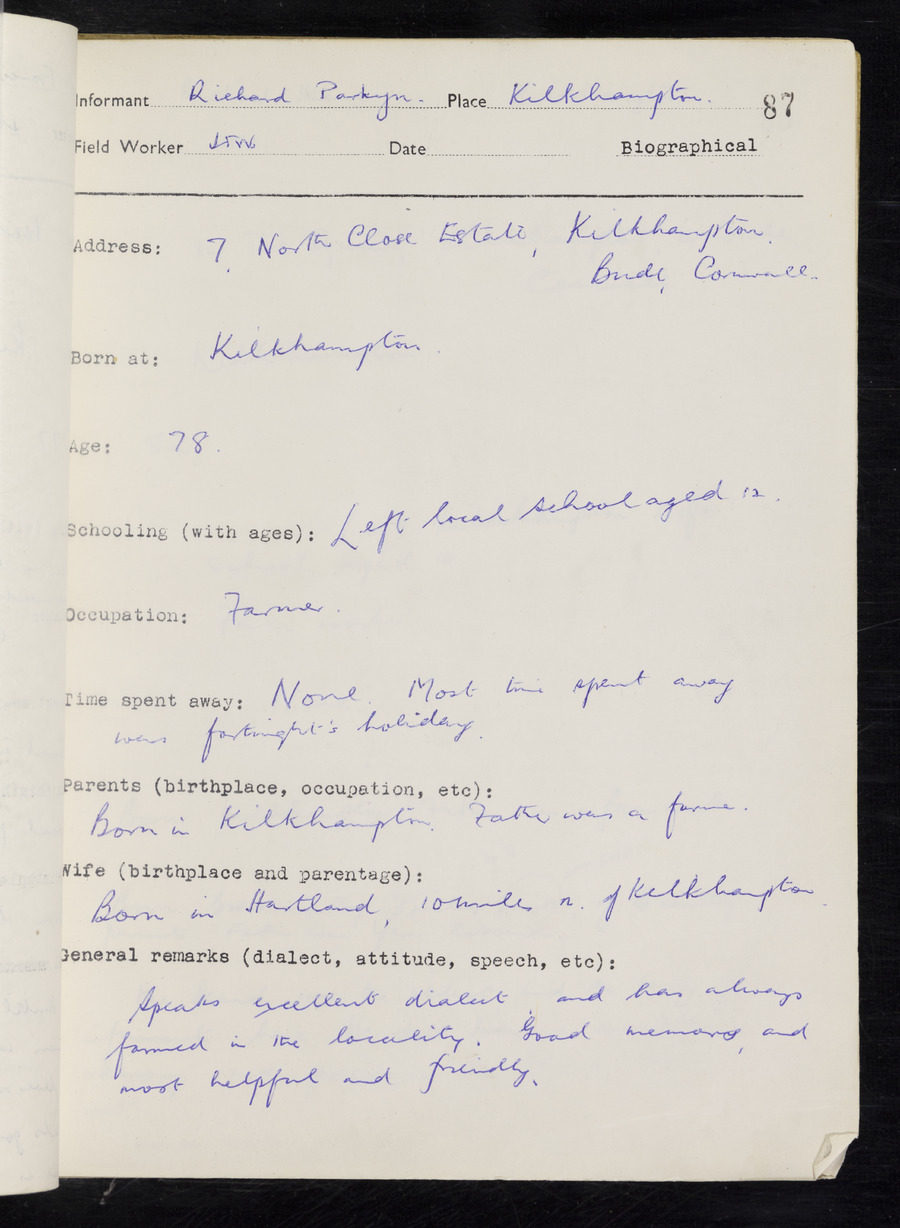 Informant Richard Parkyn. Place Kilkhampton. 87
Field Worker Date Biographical
Address: 7, North Close Estate, Kilkhampton.
Bude, Cornwall.
Born at: Kilkhampton.
Age: 78.
Schooling (with ages): Left local school aged 12.
Occupation: Farmer.
Time spent away: None. Most time spent away
was fortnight's holiday.
Parents (birthplace, occupation, etc):
Born in Kilkhampton. Father was a farmer.
Wife (birthplace and parentage):
Born in Hartland, 10 miles n. of Kilkhampton.
General remarks (dialect, attitude, speech, etc):
Speaks excellent dialect, and has always
farmed in the locality. Good memory, and
most helpful and friendly.